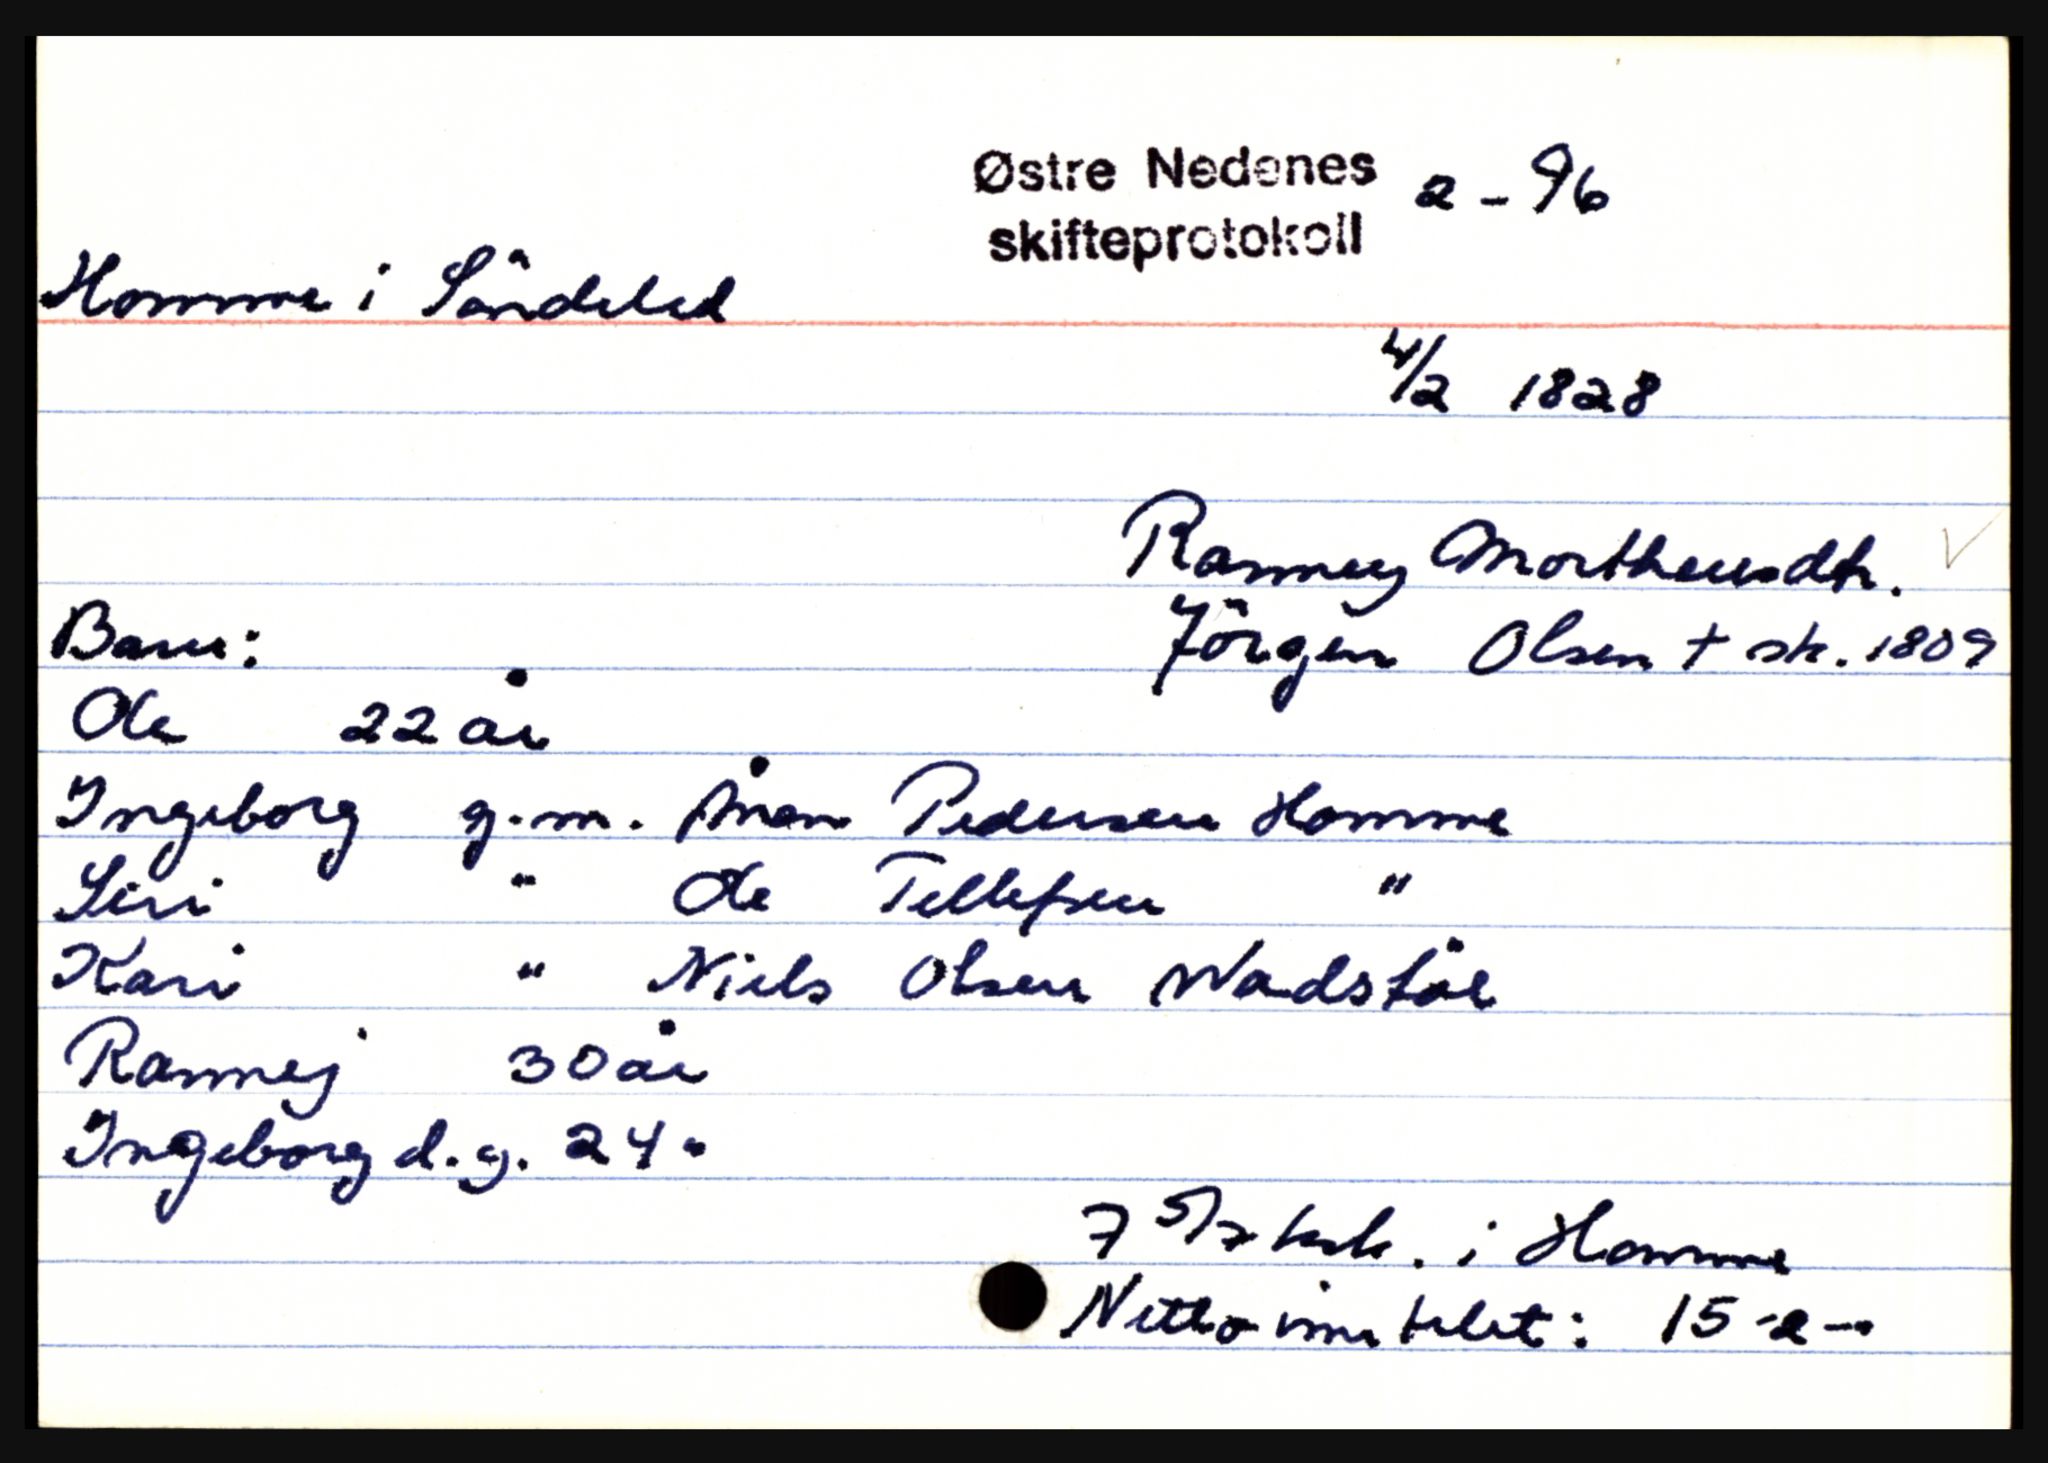 Østre Nedenes 2 - 96
skifteprotokoll
Homme i Söndeled
4/2 1828
Ranney Morthensdtr.
Barn: Jörgen Olsen + sk. 1809
Ole 22 år
Ingeborg g.m. Ånen Pedersen Homme
Siri " Ole Tellefsen "
Kari " Niels Olsen Wadstöl
Rannej 30 år
Ingeborg d.y. 24 "
7 5/7 i Homme
Netto 15-2-